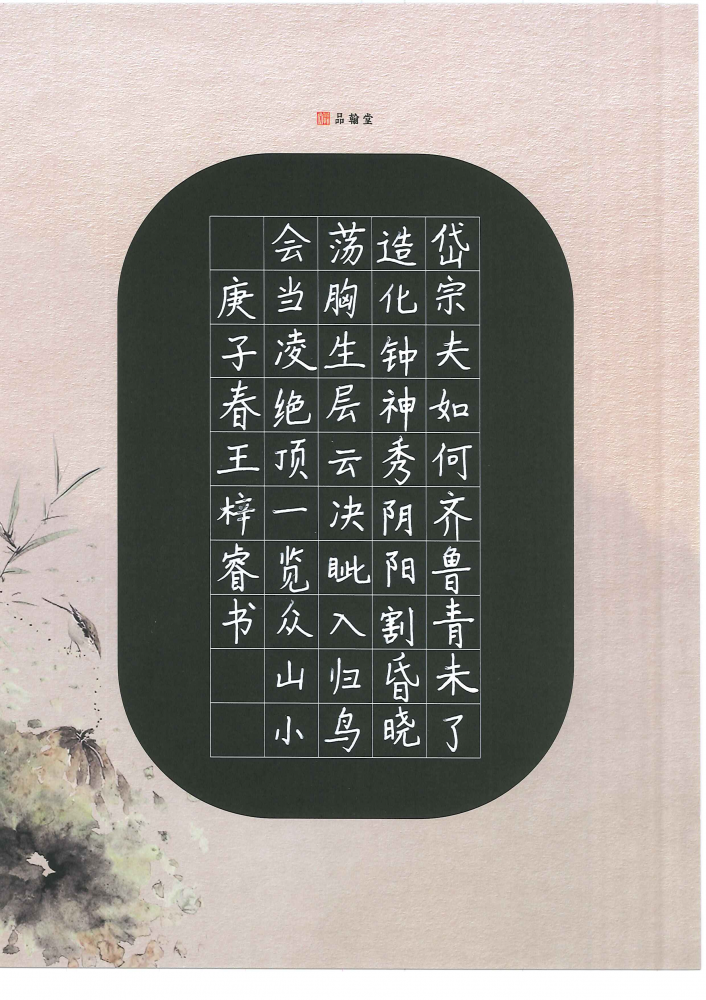 品翰堂
岱宗夫如何齐鲁青未了
造化钟神秀阴阳割昏晓
荡胸生层云决眦入归鸟
会当凌绝顶一览众山小
庚子春王梓睿书